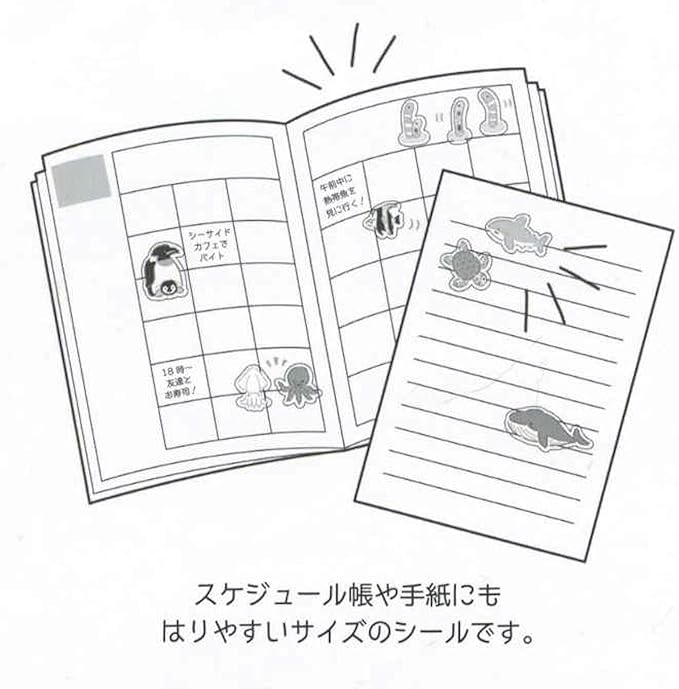 午前中に
熱帯魚を
見に行く!
シーサイド
カフェで
バイト
18時〜
友達と
お寿司!
スケジュール帳や手紙にも
はりやすいサイズのシールです。